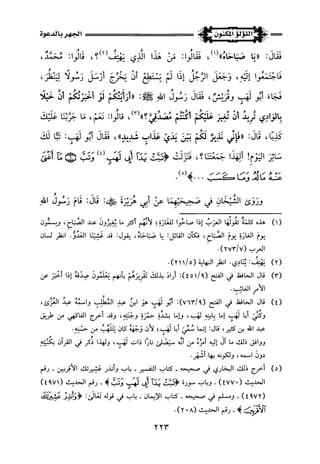 اللؤلؤ المكنون
الجهر بالدعوة
فَقَالَ: «يَا صَبَاحَاهُ»(١)، فَقَالُوا: مَنْ هَذَا الَّذِي يَهْتِفُ(٢)؟، قَالُوا: مُحَمَّدٌ،
فَاجْتَمَعُوا إِلَيْهِ، وَجَعَلَ الرَّجُلُ إِذَا لَمْ يَسْتَطِعْ أَنْ يَخْرُجَ أَرْسَلَ رَسُولًا لِيَنْظُرَ،
فَجَاءَ أَبُو لَهَبٍ وَقُرَيْشٌ، فَقَالَ رَسُولُ اللهِ ﷺ: «أَرَأَيْتُكُمْ لَوْ أَخْبَرْتُكُمْ أَنَّ خَيْلًا
بِالْوَادِي تُرِيدُ أَنْ تُغِيرَ عَلَيْكُمْ أَكُنْتُمْ مُصَدِّقِيَّ؟»(٣)، قَالُوا: نَعَمْ، مَا جَرَّبْنَا عَلَيْكَ
كَذِبًا، قَالَ: «فَإِنِّي نَذِيرٌ لَكُمْ بَيْنَ يَدَيْ عَذَابٍ شَدِيدٍ»، فَقَالَ أَبُو لَهَبٍ: تَبًّا لَكَ
سَائِرَ الْيَوْمِ! أَلِهَذَا جَمَعْتَنَا؟، فَنَزَلَتْ ﴿تَبَّتْ يَدَا أَبِي لَهَبٍ(٤) وَتَبَّ ۝ مَا أَغْنَى
عَنْهُ مَالُهُ وَمَا كَسَبَ ... ﴾(٥).
وَرَوَى الشَّيْخَانِ فِي صَحِيحَيْهِمَا عَنْ أَبِي هُرَيْرَةَ ﷺ قَالَ: قَامَ رَسُولُ اللهِ
(١) هذه كلمةٌ تَقُولُهَا العربُ إذا صاحُوا للغَارَةِ؛ لأنَّهم أكثر ما يُغِيرُونَ عند الصَّبَاحِ، ويسمُّون
يومَ الغارةِ يومَ الصَّباح، فكأن القائل: يا صَبَاحَاه، يقول: قد غَشِيَنَا العَدُوُّ. انظر لسان
العرب (٢٧٣/٧).
(٢) يَهْتِفُ: يُنَادِي. انظر النهاية (٢١١/٥).
(٣) قال الحافظ في الفتح (٤٥١/٩): أرادَ بذلكَ تَقْرِيرَهُمْ بأنهم يَعْلَمُونَ صِدْقَهُ إذا أخبَرَ عنِ
الأمرِ الغائِبِ.
(٤) قال الحافظ في الفتح (٧٦٣/٩): أبُو لَهَبٍ هوَ ابنُ عبدِ المطَّلِبِ واسمُهُ عبدُ العُزَّى،
وكُنِّيَ أبَا لَهَبٍ إما بِابنِهِ لهَبٍ، وإما بشدَّةِ حُمْرَةِ وجْنَتِهِ، وقد أخرج الفاكهي من طريق
عبد الله بن كثير، قال: إنما سُمِّيَ أبا لَهَبٍ؛ لأن وَجْهَهُ كان يَتَلَهَّبُ من حُسْنِهِ.
ووافق ذلك ما آلَ إليه أمرُهُ من أنَّه سيَصْلَى نارًا ذاتَ لَهَبٍ، ولهذا ذُكِرَ في القرآن بِكُنْيَتِهِ
دونَ اسمه، ولكونه بها أشهَر.
(٥) أخرج ذلك البخاري في صحيحه - كتاب التفسير - باب وأنذر عشيرتك الأقربين - رقم
الحديث (٤٧٧٠) - وباب سورة ﴿تَبَّتْ يَدَا أَبِي لَهَبٍ وَتَبَّ﴾ - رقم الحديث (٤٩٧١)
(٤٩٧٢) - ومسلم في صحيحه - كتاب الإيمان - باب في قوله تَعَالَى: ﴿وَأَنذِرْ عَشِيرَتَكَ
الْأَقْرَبِينَ﴾ - رقم الحديث (٢٠٨).
٢٢٣